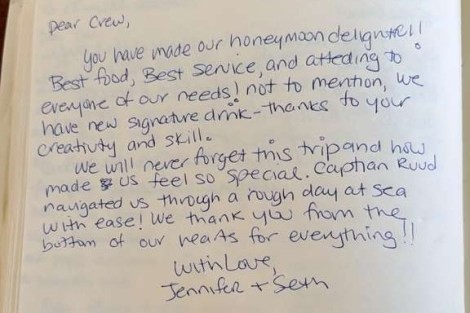 Dear Crew,
You have made our honeymoon delightful!
Best food, Best service, and atteding to
everyone of our needs! not to mention, we
have new signature drink - thanks to your
creativity and skill.
We will never forget this trip and how
made us feel so special. Capthan Ruud
navigated us through a rough day at sea
with ease! We thank you from the
bottom of our hearts for everything!!
With Love,
Jennifer + Seth